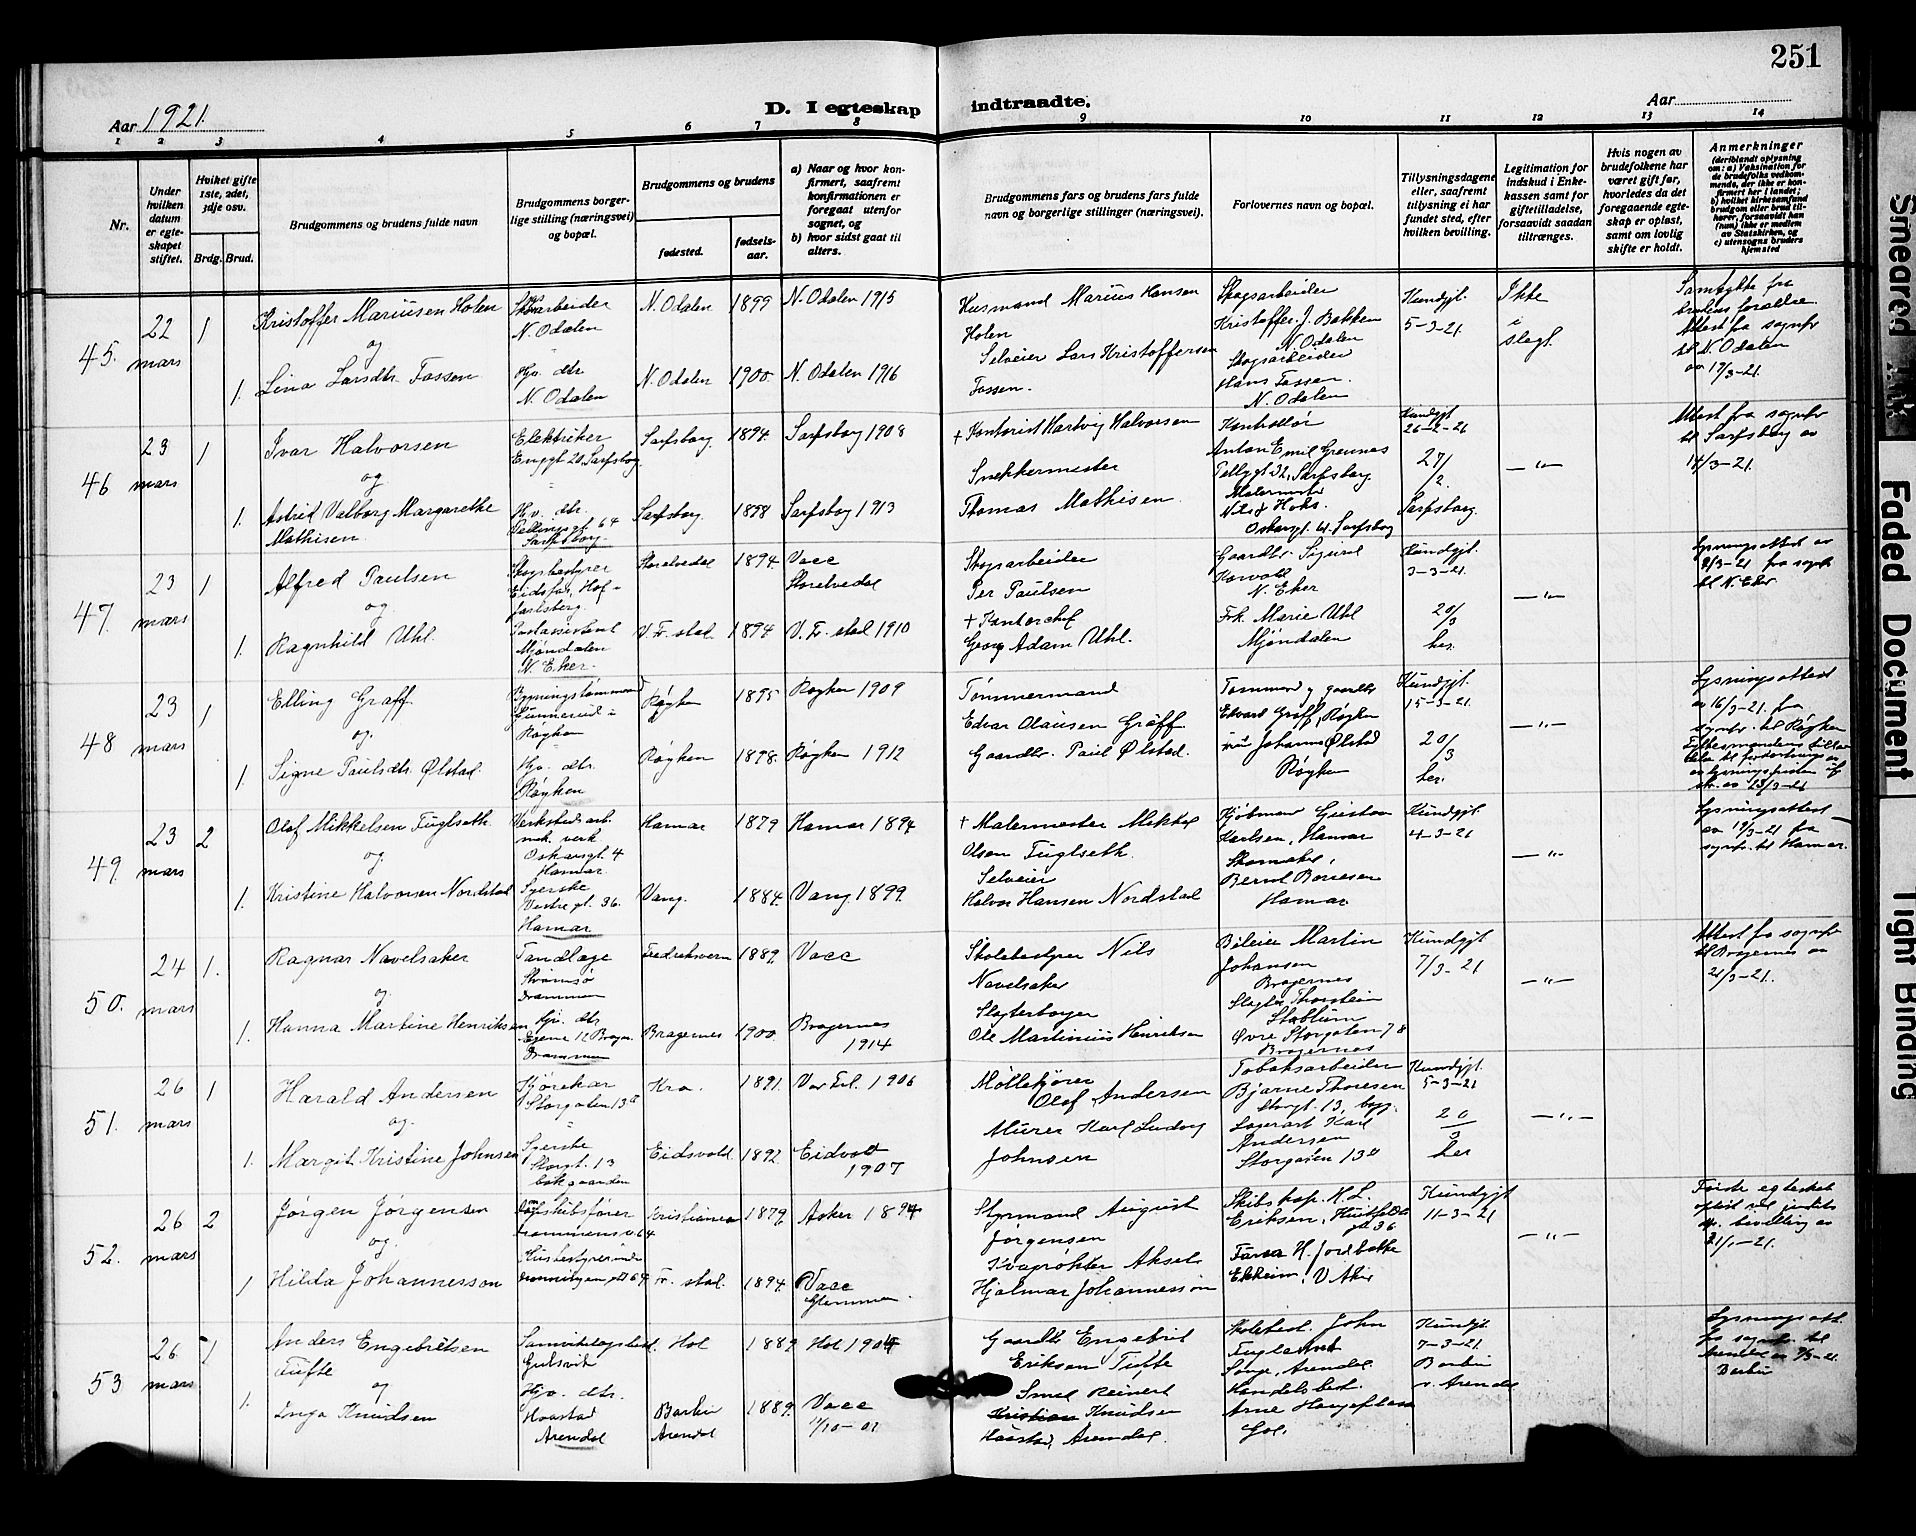 251
Aar 1921.
D. I egteskap indtraadte.
Aar
1 2 3 4 5 6 7 8 9 10 11 12 13 14
Nr.
Under hvilken datum er egteskapet stiftet.
Hviket gifte 1ste, 2det, 3dje osv.
Brdg. Brud.
Brudgommens og brudens fulde navn
Brudgommens borgerlige stilling (næringsvei) og bopæl.
Brudgommens og brudens
fødested.
fødselsaar.
a) Naar og hvor konfirmert, saafremt konfirmationen er foregaat utenfor sognet, og
b) hvor sidst gaat til alters.
Brudgommens fars og brudens fars fulde navn og borgerlige stillinger (næringsvei).
Forlovernes navn og bopæl.
Tillysningsdagene eller, saafremt tillysning ei har fundet sted, efter hvilken bevilling.
Legitimation for indskud i Enkekassen samt for giftetilladelse, forsaavidt saadan tiltrænges.
Hvis nogen av brudefolkene har været gift før, hvorledes da det foregaaende egteskap er opløst, samt om lovlig skifte er holdt.
Anmerkninger
(deriblandt oplysning om: a) Vaksination for de brudefolks vedkommende, der ikke er konfirmert her i landet; b) hvilket kirkesamfund brudgom eller brud tilhører, forsaavidt han (hun) ikke er medlem av Statskirken, og c) utensogns bruders hjemsted
45. 22 mars 1 Kristoffer Mariusen Holen
og
1. Lina Larsdtr. Fossen
Skogarbeider N. Odalen
Hjv. dtr. N. Odalen
N. Odalen 1899 N. Odalen 1915
N. Odalen 1900. N. Odalen 1916
Husmand Marius Hansen Holen
Selveier Lars Kristoffersen Fossen.
Skogsarbeider Kristoffer J. Bakken N. Odalen
Skogsarbeider Hans Fossen. N. Odalen
Kundgjt. 5-3-21.
Ikke i slegt.
Samtykke fra brudens forældre.
Attest fra sognepr. til N. Odalen av 17/3-21.
46 23 mars 1 Ivar Halvorsen
og
1. Astrid Valborg Margarethe Mathisen
Elektriker Enggt 20. Sarpsborg
Hjv. dtr. Pellygt 64 Sarpsborg
Sarpsborg 1894. Sarpsborg 1908
Sarpsborg. 1898 Sarpsborg 1913
+ Kontorist Hartvig Halvorsen
Snekkermester Thomas Mathisen
Kontrollør Anton Emil Grennes
Sarpsborg
Kundgjt 26-2-21
27/2. Sarpsborg.
— " —
Attest fra sognepr til Sarpsborg av 14/3-21.
47. 23 mars 1 Alfred Paulsen
og
1. Ragnhild Uhl.
Skogbestyrer Eidsfos, Hof i Jarlsberg.
Postassistent Mjøndalen N. Eker.
Storelvedal 1894. Vacc Storelvedal
V. Fr. stad 1894 V. Fr. stad 1910
Skogarbeider Per Paulsen
+ Kontorchef Georg Adam Uhl.
Gaardbr. Sigurd Korvald N. Eker
Frk. Marie Uhl Mjøndalen
Kundgjt. 3-3-21.
20/3 her.
— " —
Lysningsattest av 21/3-21 fra sognepr til N. Eker.
48 23 mars 1 Elling Graff
og
1. Signe Paulsdtr. Ølstad.
Bygningstømmermand Gunnerud i Røyken
Hjv. dtr. Røyken
Røyken 1895 Røyken 1909
Røyken 1898. Røyken 1912
Tømmermand Edvar Olausen Graff
Gaardbr. Paul Ølstad.
Tømmerm. og gaardbr Edvard Graff, Røyken
Johannes Ølstad Røyken
Kundgjt. 15-3-21.
20/3 her.
— " —
Lysningsattest av 16/3-21. fra sognepr. til Røyken
49. 23 mars 2 Olof Mikkelsen Fuglseth.
og
1. Kristine Halvorsen Nordstad
Verkstedsarb. mek. verk Oskarsgt. 4 Hamar.
Syerske Vestregt. 36. Hamar
Hamar 1879 Hamar 1894
Vang. 1884. Vang 1899.
+ Malermester Mikkel Olsen Fuglseth.
Selveier Halvor Hansen Nordstad
Kjøbmand Gustav Karlsen, Hamar
Skomaker, Bernt Borresen Hamar
Kundgjt 4-3-21
— " —
Lysningsattest av 19/3-21 fra sognepr. til Hamar.
50. 24 mars 1. Ragnar Navelsaker
og
1. Hanna Martine Henriksen
Tandlæge Strømsø Drammen
Hjv. dtr Drammen
Fredriksvern 1889. Vacc
Bragernes 1900. Bragernes 1914
Skolebestyrer Nils Navelsaker
Slagterborger Ole Martinius Henriksen
Bileier Martin Johansen Bragernes
Slagter Thorstein
Øvre Storgaten 78 Bragernes
Kundgjt. 7/3-21
— " —
Attest fra sognepr til Bragernes av 21/3-21.
51. 26 mars 1 Harald Andersen
og.
1. Margit Kristine Johnsen
Kjørekar Storgaten 13
Syerske Storgt. 13 bakgaarden
Kra. 1891. Vor Frl. 1906
Eidsvold. 1892. Eidsvold 1907
Møllekjører Olof Andersen
Murer Karl Ludvig Johnsen
Tobaksarbeider Bjarne Thoresen Storgt. 13,
Lagerarb. Karl Andersen Storgaten 13
Kundgjt. 5-3-21
20/3 her
— " —
52. 26 mars 2 Jørgen Jørgensen
og.
1 Hilda Johannesson
Dampskibsfører Drammensv. 64
Husbestyrerinde
Kristiania 1879. Asker 1894
Fr. stad. 1894. Vacc Glemmen.
Styrmand August Jørgensen
Aksel Hjalmar Johannesson
Skibskap. H. L. Eriksen, Huitfeldts gt 36
H. Jordbakke Ekheim, V Aker
Kundgjt 11-3-21
— " —
Første egteskab opløst ved bevilling av 21/1-21.
53 26. mars 1 Anders Engebritsen Tufte
og
1. Inga Knudsen
Gulsvik
Hjv. dtr. Haastad Arendal
Hol 1889. Hol 1904
Barbu Arendal 1889. Vacc 11/10-01
Gaardbr Engebrit Eriksen Tufte
Smed Reinert Kristian Knudsen Haastad, Arendal.
John Fugle Songe, Arendal
Handelsbest. Arne Gol.
Kundgjt. 7-3-21.
Barbu v. Arendal
Lysningsatt. fra sognepr. til Arendal av 9/3-21. Barbu
Smeared Ink
Faded Document
Tight Binding